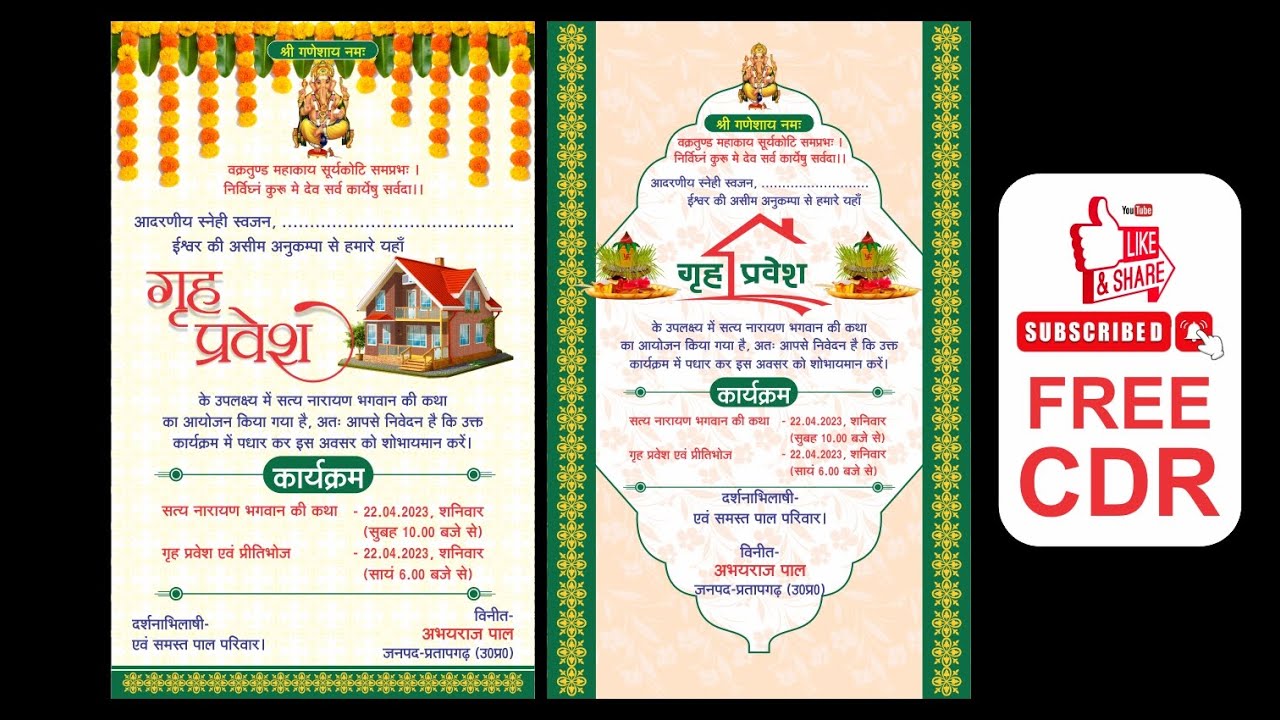 श्री गणेशाय नमः
वक्रतुण्ड महाकाय सूर्यकोटि समप्रभः ।
निर्विघ्नं कुरू मे देव सर्व कार्येषु सर्वदा।।
आदरणीय स्नेही स्वजन, ........................................
ईश्वर की असीम अनुकम्पा से हमारे यहाँ
गृह
प्रवेश
के उपलक्ष्य में सत्य नारायण भगवान की कथा
का आयोजन किया गया है, अतः आपसे निवेदन है कि उक्त
कार्यक्रम में पधार कर इस अवसर को शोभायमान करें।
कार्यक्रम
सत्य नारायण भगवान की कथा - 22.04.2023, शनिवार
(सुबह 10.00 बजे से)
गृह प्रवेश एवं प्रीतिभोज - 22.04.2023, शनिवार
(सायं 6.00 बजे से)
दर्शनाभिलाषी-
एवं समस्त पाल परिवार।
विनीत-
अभयराज पाल
जनपद-प्रतापगढ़ (उ0प्र0)
श्री गणेशाय नमः
वक्रतुण्ड महाकाय सूर्यकोटि समप्रभः ।
निर्विघ्नं कुरू मे देव सर्व कार्येषु सर्वदा।।
आदरणीय स्नेही स्वजन, ..........................
ईश्वर की असीम अनुकम्पा से हमारे यहाँ
गृह प्रवेश
के उपलक्ष्य में सत्य नारायण भगवान की कथा
का आयोजन किया गया है, अतः आपसे निवेदन है कि उक्त
कार्यक्रम में पधार कर इस अवसर को शोभायमान करें।
कार्यक्रम
सत्य नारायण भगवान की कथा - 22.04.2023, शनिवार
(सुबह 10.00 बजे से)
गृह प्रवेश एवं प्रीतिभोज - 22.04.2023, शनिवार
(सायं 6.00 बजे से)
दर्शनाभिलाषी-
एवं समस्त पाल परिवार।
विनीत-
अभयराज पाल
जनपद-प्रतापगढ़ (उ0प्र0)
YouTube
LIKE
& SHARE
SUBSCRIBED
FREE
CDR